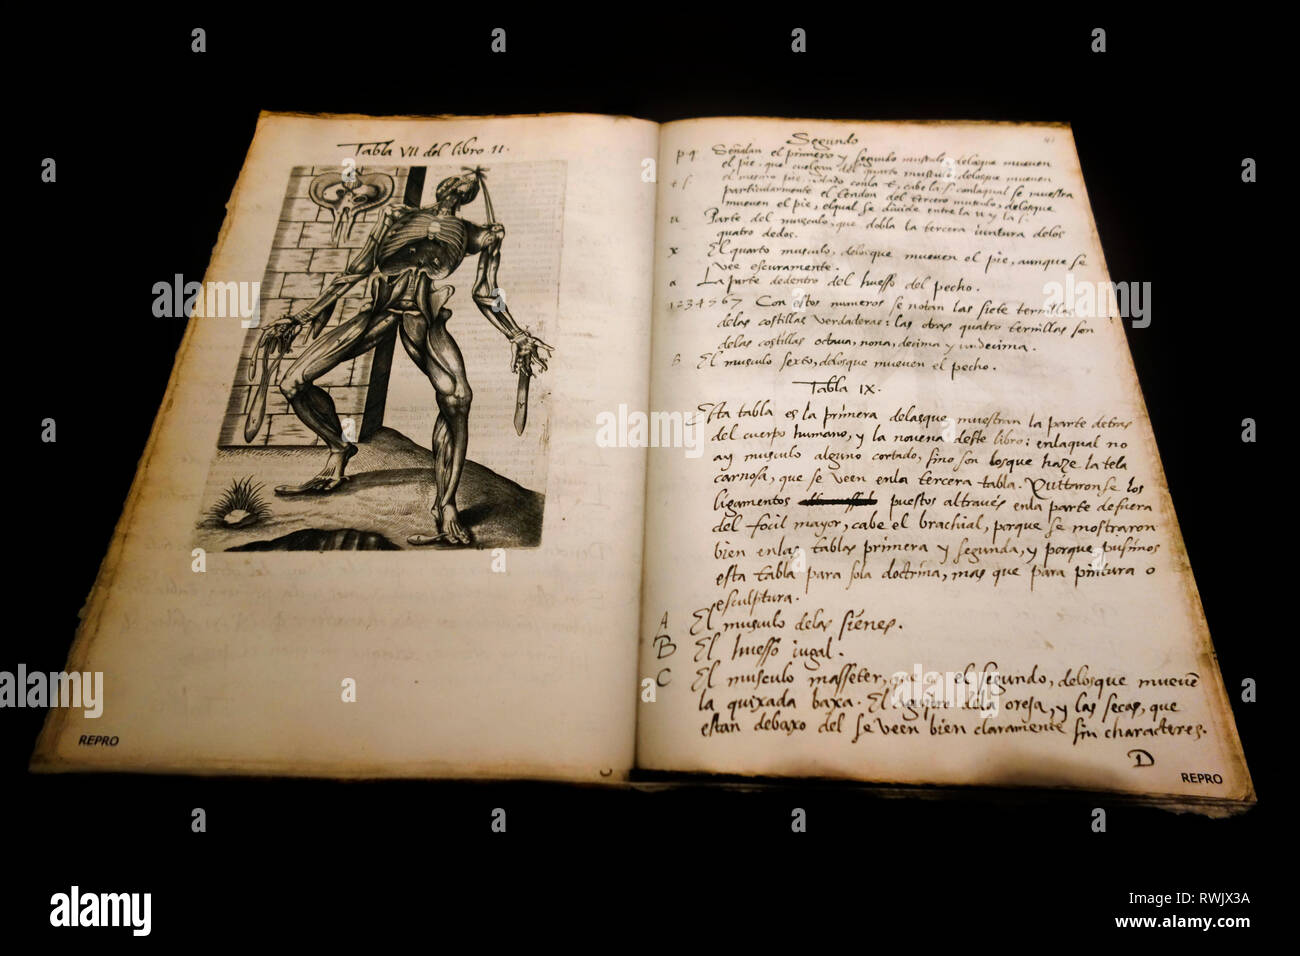 Tabla VII del libro II.
REPRO
Segundo
p q Señalan el primero y segundo musculo, delosque mueven
el pie, que cuelgan del quarto musculo, delosque mueven
el mismo pie, notado conla
particularmente el tendon del tercero musculo, delosque
mueven el pie, elqual se divide entre la u y la s.
u Parte del musculo, que dobla la tercera iuntura delos
quatro dedos.
x El quarto musculo, delosque mueven el pie, aunque se
vee escuramente.
a La parte dedentro del huesso del pecho.
1 2 3 4 5 6 7 Con estos numeros se notan las siete ternillas
delas costillas verdaderas: las otras quatro ternillas son
delas costillas octava, nona, decima y undecima.
B El musculo sexto, delosque mueven el pecho.
Tabla IX.
Esta tabla es la primera delasque muestran la parte detras
del cuerpo humano, y la novena deste libro: enlaqual no
ay musculo alguno cortado, sino son losque haze la tela
carnosa, que se veen enla tercera tabla. Quittaronse los
ligamentos puestos altraves enla parte defuera
del focil mayor, cabe el brachial, porque se mostraron
bien enlas tablas primera y segunda, y porque pusimos
esta tabla para sola doctrina, mas que para pintura o
esculptura.
A El musculo delas sienes.
B El huesso iugal.
C El musculo masseter, que es el segundo, delosque mueven
la quixada baxa. El agujero dela oreja, y las secas, que
estan debaxo del se veen bien claramente sin characteres.
D
REPRO
alamy
Image ID: RWJX3A
www.alamy.com